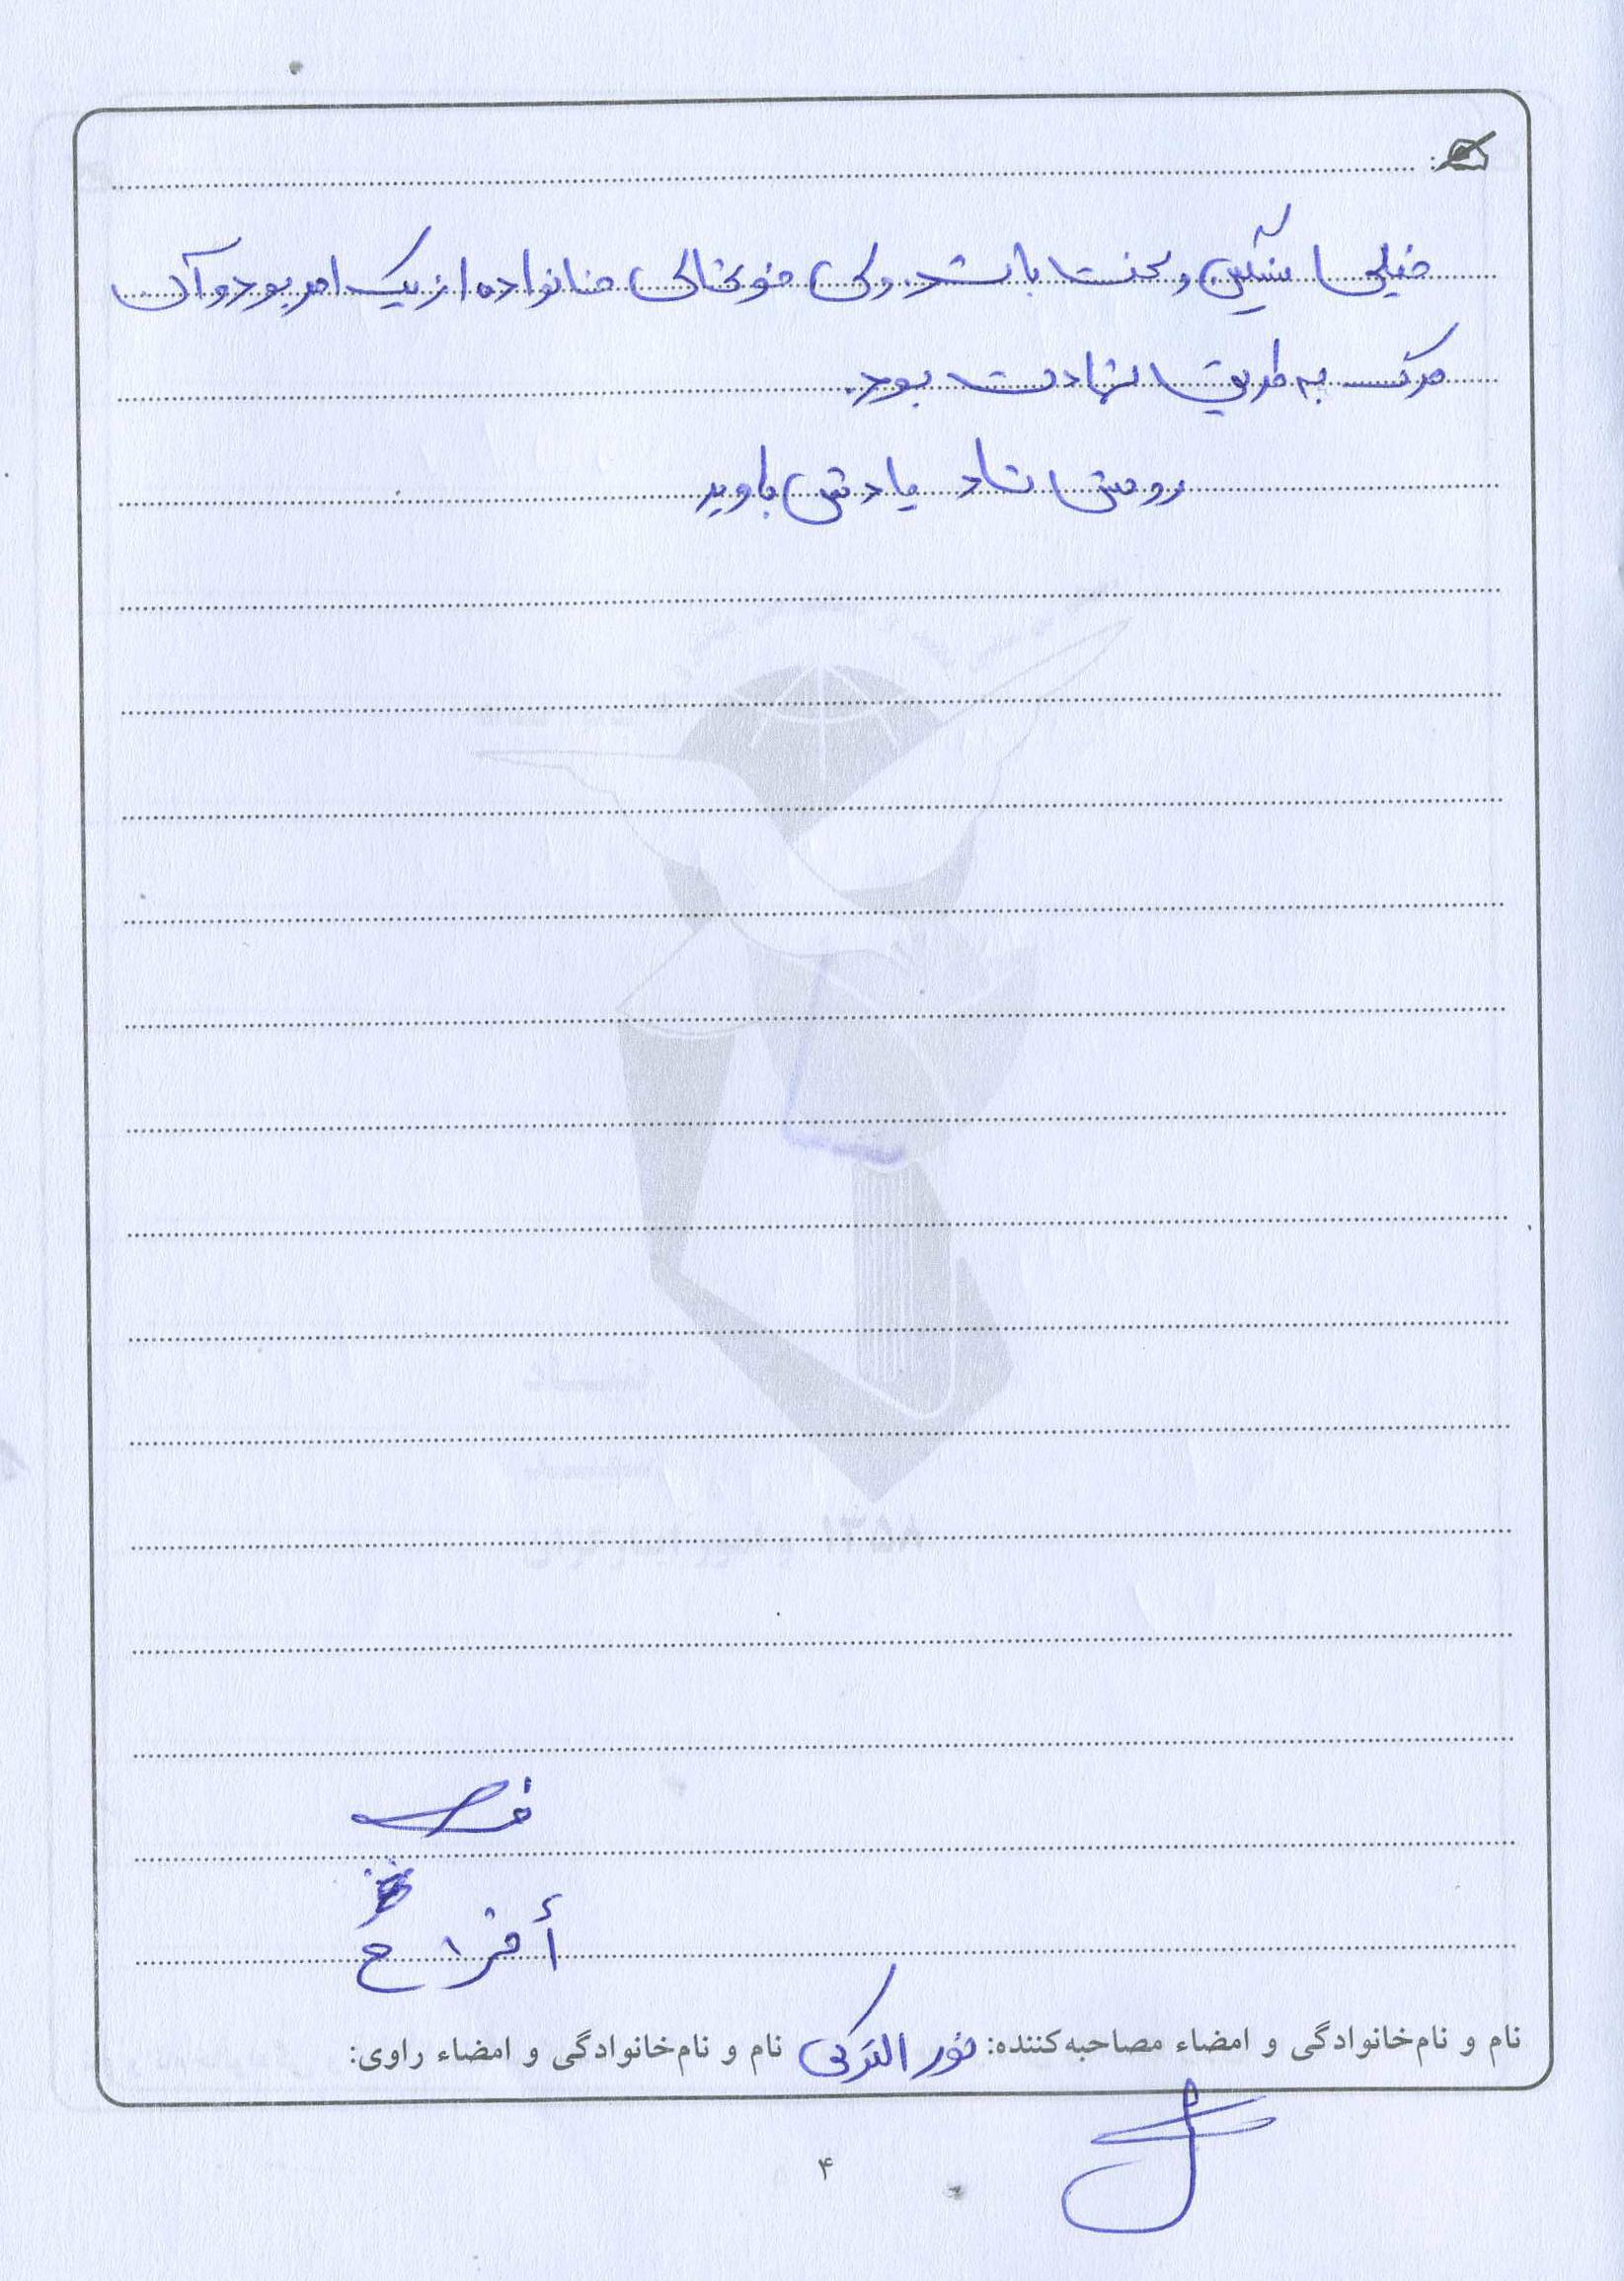 خیلی سنگین و سخت باشد. ولی خوشحالی خانواده از یک امر بود و آن
مرگ به طریق شهادت بود.
روحش شاد یادش جاوید
أفراح
نام و نام‌خانوادگی و امضاء مصاحبه‌کننده: نور الترکی نام و نام‌خانوادگی و امضاء راوی:
۴